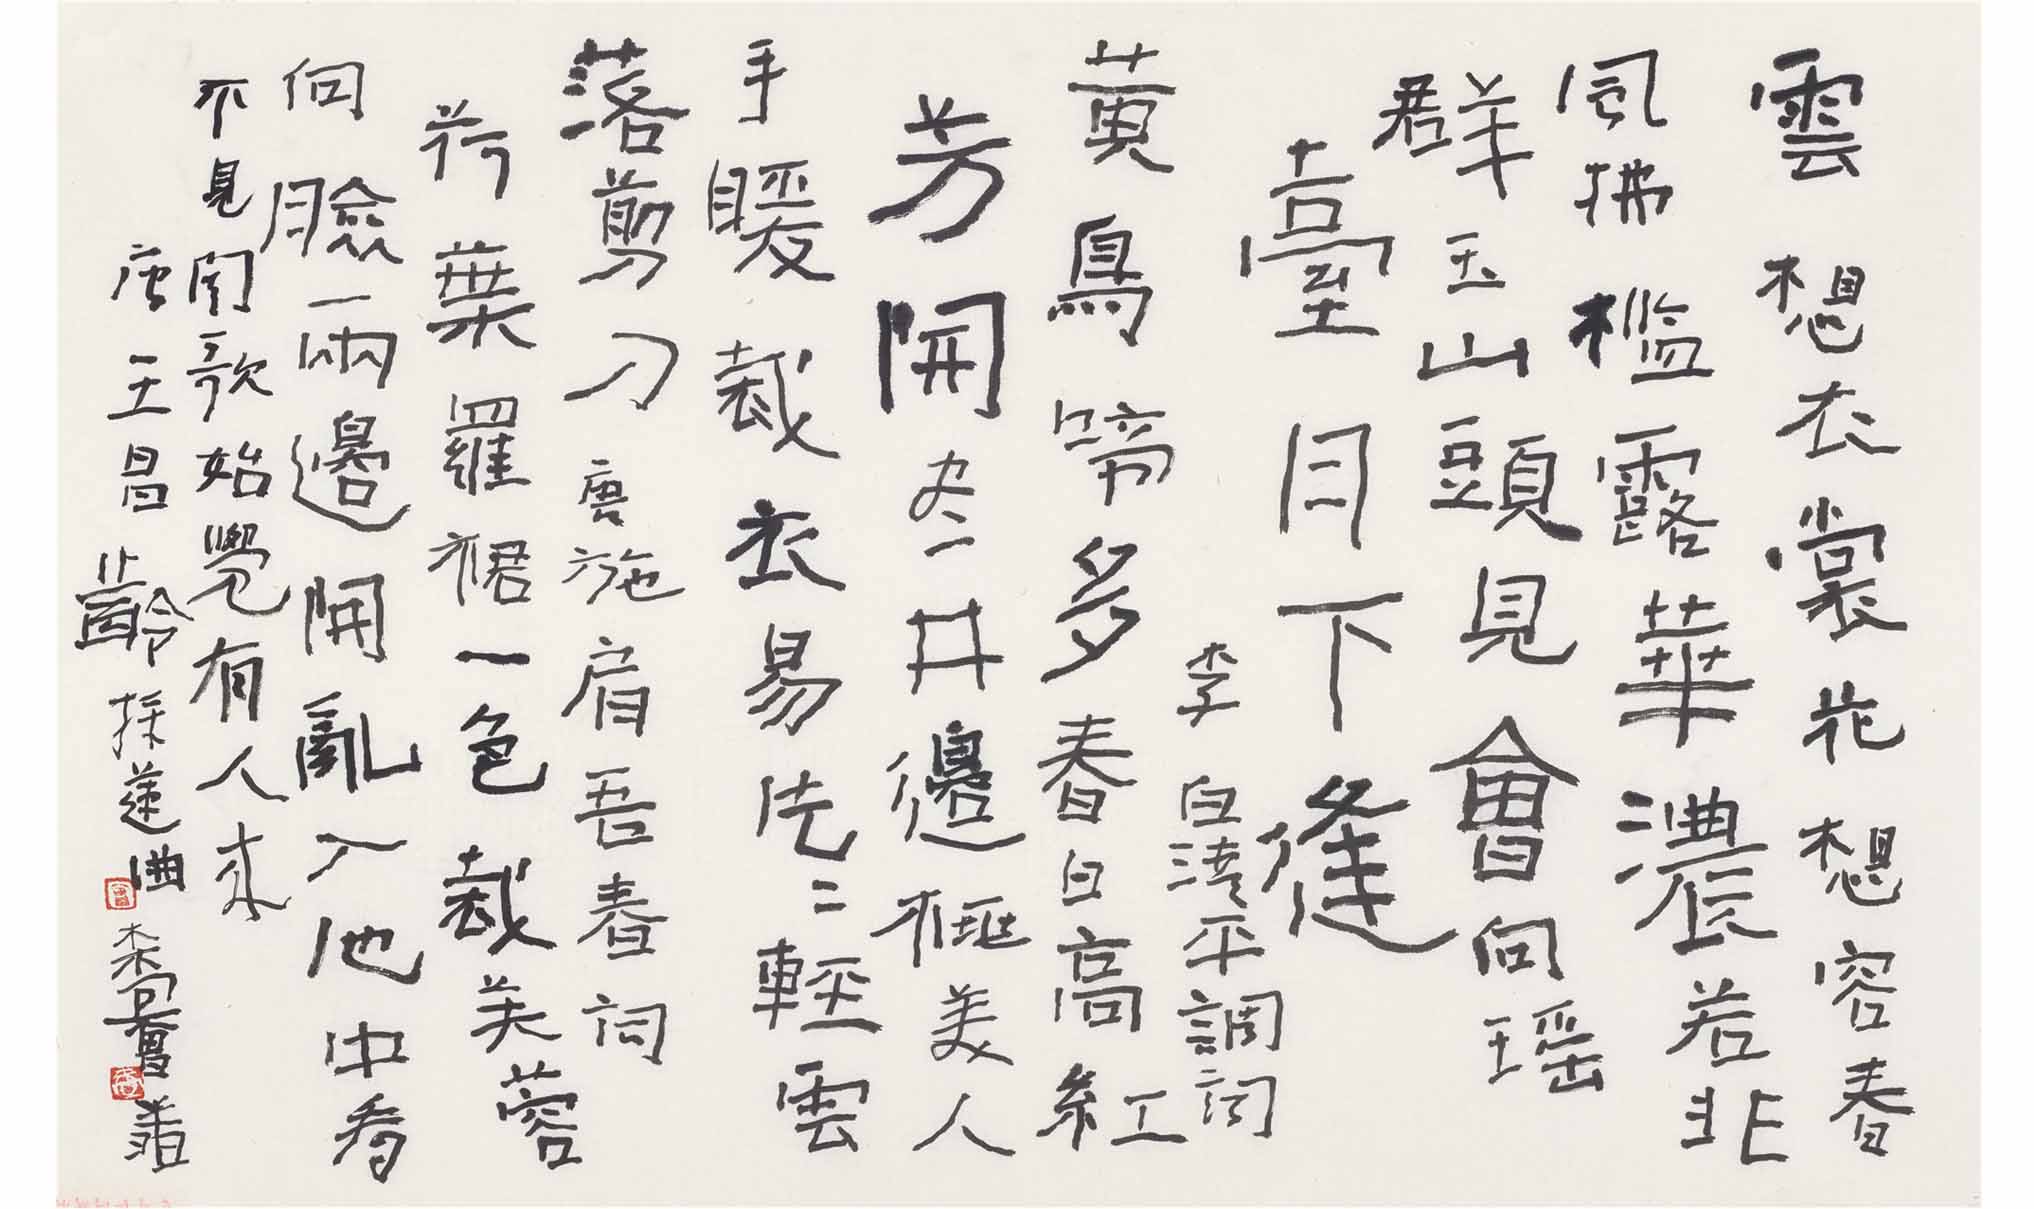 雲想衣裳花想容春
風拂檻露華濃若非
群玉山頭見會向瑶
臺月下逢
李白清平調詞
黄鳥啼多春日高紅
芳開尽井邊美人
手暖裁衣易片二輕雲
落剪刀唐施肩吾春詞
荷葉羅裙一色裁芙蓉
向臉兩邊開亂入池中看
不見聞歌始覺有人来
唐王昌齡採蓮曲